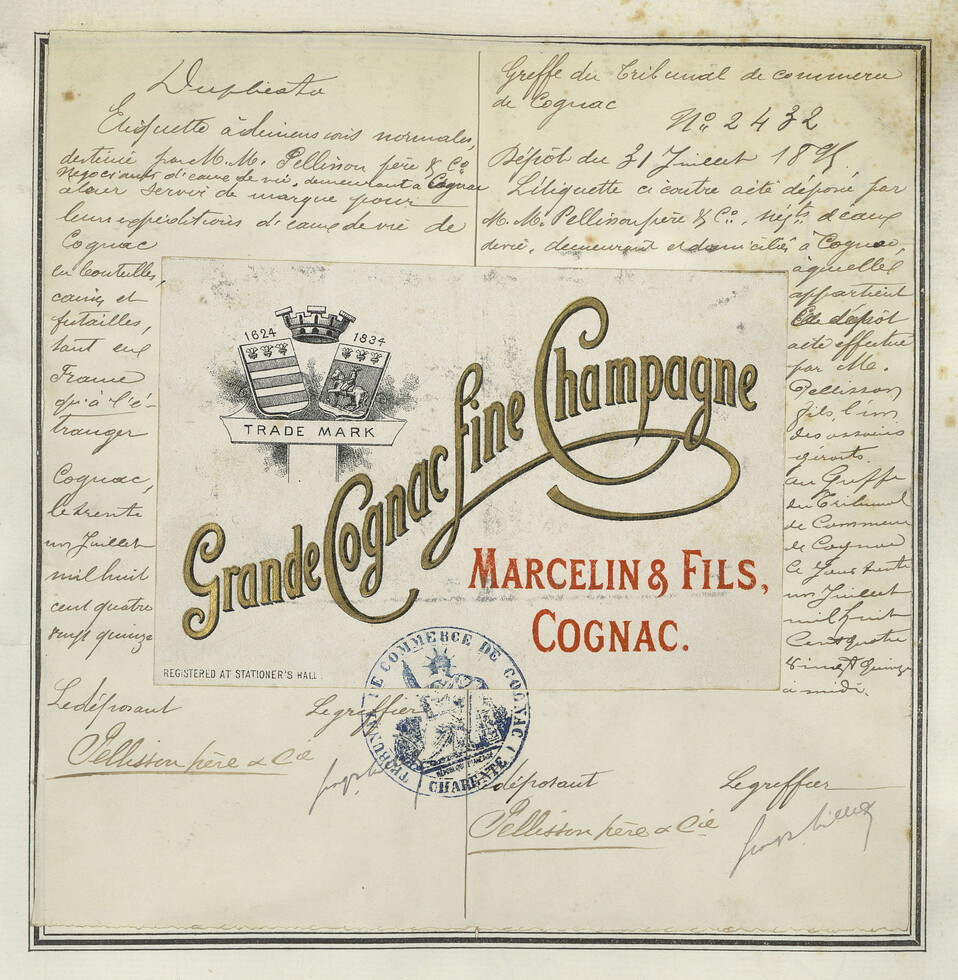 Duplicata
Etiquette à dimensions normales,
destinée par M. M. Pellisson père & Co
négociants d'eaux de vie, demeurant à Cognac
à leur servir de marque pour
leurs expéditions d'eaux de vie de
Cognac
en bouteilles,
caisses et
futailles,
tant en
France
qu'à l'é-
tranger
Cognac,
le trente
un Juillet
mil huit
cent quatre
vingt quinze
Le déposant
Le greffier
Pellisson père & Cie
Greffe du Tribunal de commerce
de Cognac
No 2432
Dépôt du 31 Juillet 1895
L'étiquette ci contre a été déposée par
M. M. Pellisson père & Co, négts d'eaux
de vie, demeurant et domiciliés à Cognac,
à
appartient
Ce dépôt
a été effectué
par M.
Pellisson
fils l'un
des associés
gérants.
au Greffe
du Tribunal
de Commerce
de Cognac
Ce Jour trente
un Juillet
mil huit
Cent quatre
vingt quinze
à midi.
déposant
Le greffier
Pellisson père & Cie
1624
1834
TRADE MARK
Grande Cognac fine Champagne
MARCELIN & FILS,
COGNAC.
REGISTERED AT STATIONER'S HALL
TRIBUNAL DE COMMERCE DE COGNAC
(CHARENTE)